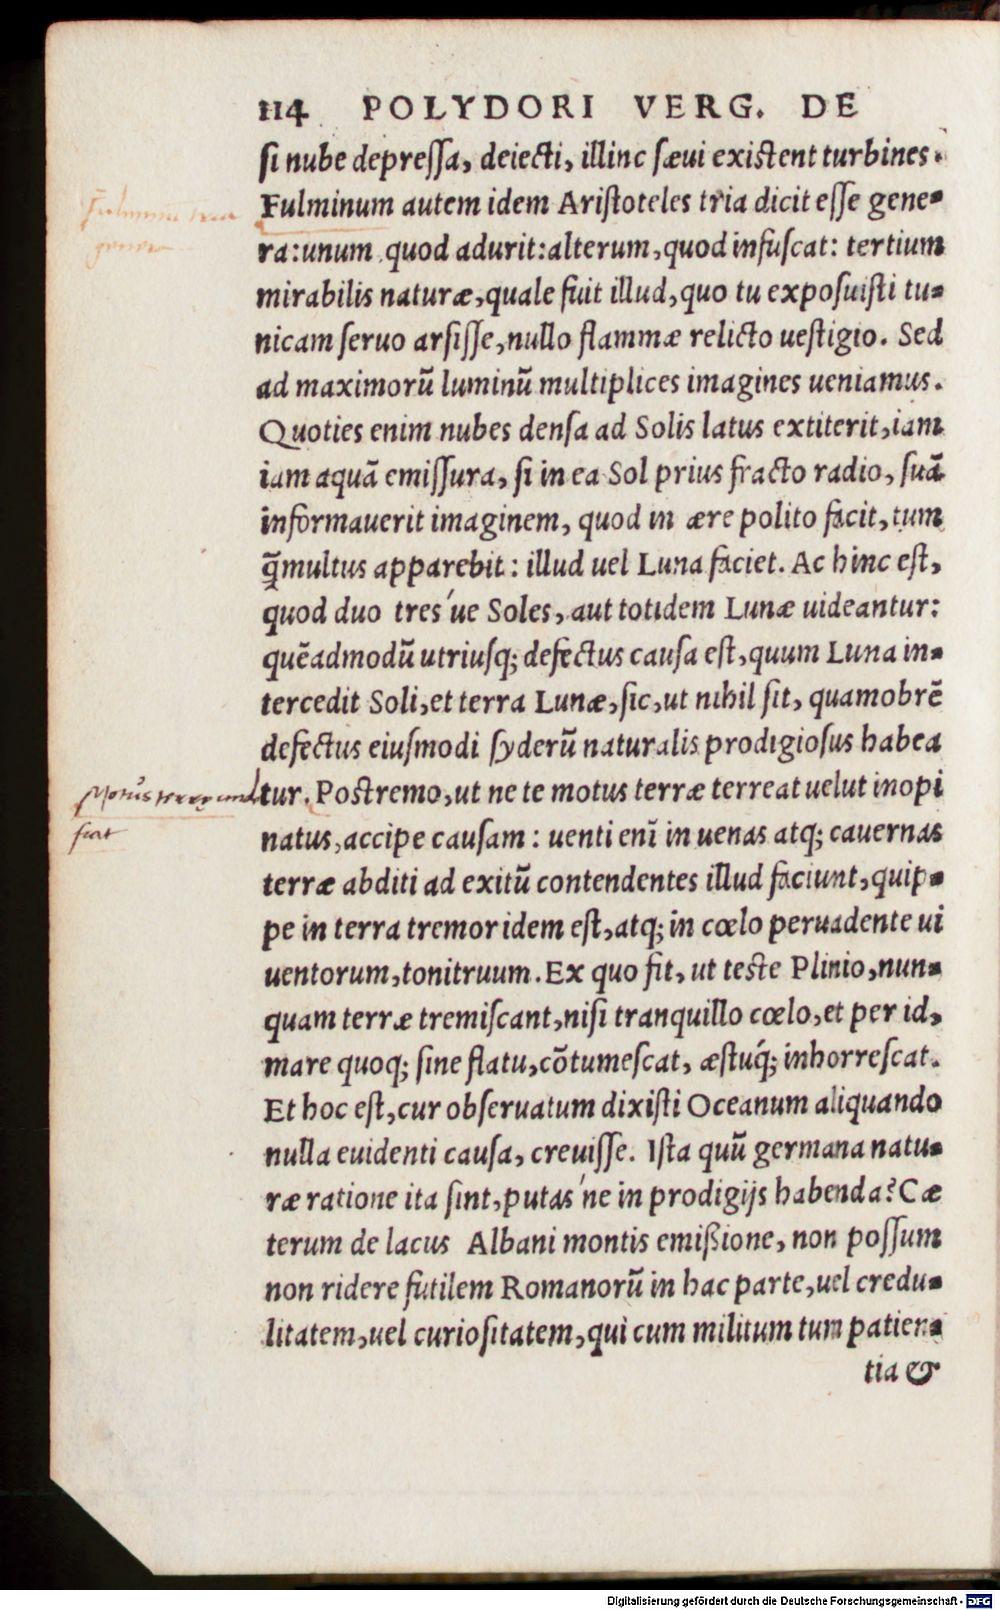 114 POLYDORI VERG. DE
si nube depressa, deiecti, illinc sæui existent turbines.
Fulminum tria
genera
Fulminum autem idem Aristoteles tria dicit esse gene-
ra: unum quod adurit: alterum, quod infuscat: tertium
mirabilis naturæ, quale fuit illud, quo tu exposuisti tu-
nicam seruo arsisse, nullo flammæ relicto uestigio. Sed
ad maximorũ luminũ multiplices imagines ueniamus.
Quoties enim nubes densa ad Solis latus extiterit, iam
iam aquã emissura, si in ea Sol prius fracto radio, suã
informauerit imaginem, quod in ære polito facit, tum
q̃multus apparebit: illud uel Luna faciet. Ac hinc est,
quod duo tres´ue Soles, aut totidem Lunæ uideantur:
quẽadmodũ utriusq; defectus causa est, quum Luna in-
tercedit Soli, et terra Lunæ, sic, ut nihil sit, quamobrẽ
defectus eiusmodi syderũ naturalis prodigiosus habea
Motus terræ unde
fiat
tur. Postremo, ut ne te motus terræ terreat uelut inopi
natus, accipe causam: uenti enĩ in uenas atq; cauernas
terræ abditi ad exitũ contendentes illud faciunt, quip-
pe in terra tremor idem est, atq; in cœlo peruadente ui
uentorum, tonitruum. Ex quo fit, ut teste Plinio, nun-
quam terræ tremiscant, nisi tranquillo cœlo, et per id,
mare quoq; sine flatu, cõtumescat, æstuq́; inhorrescat.
Et hoc est, cur obseruatum dixisti Oceanum aliquando
nulla euidenti causa, creuisse. Ista quũ germana natu-
ræ ratione ita sint, putas´ne in prodigijs habenda? Cæ
terum de lacus Albani montis emißione, non possum
non ridere futilem Romanorũ in hac parte, uel credu-
litatem, uel curiositatem, qui cum militum tum patien-
tia &
Digitalisierung gefördert durch die Deutsche Forschungsgemeinschaft - DFG